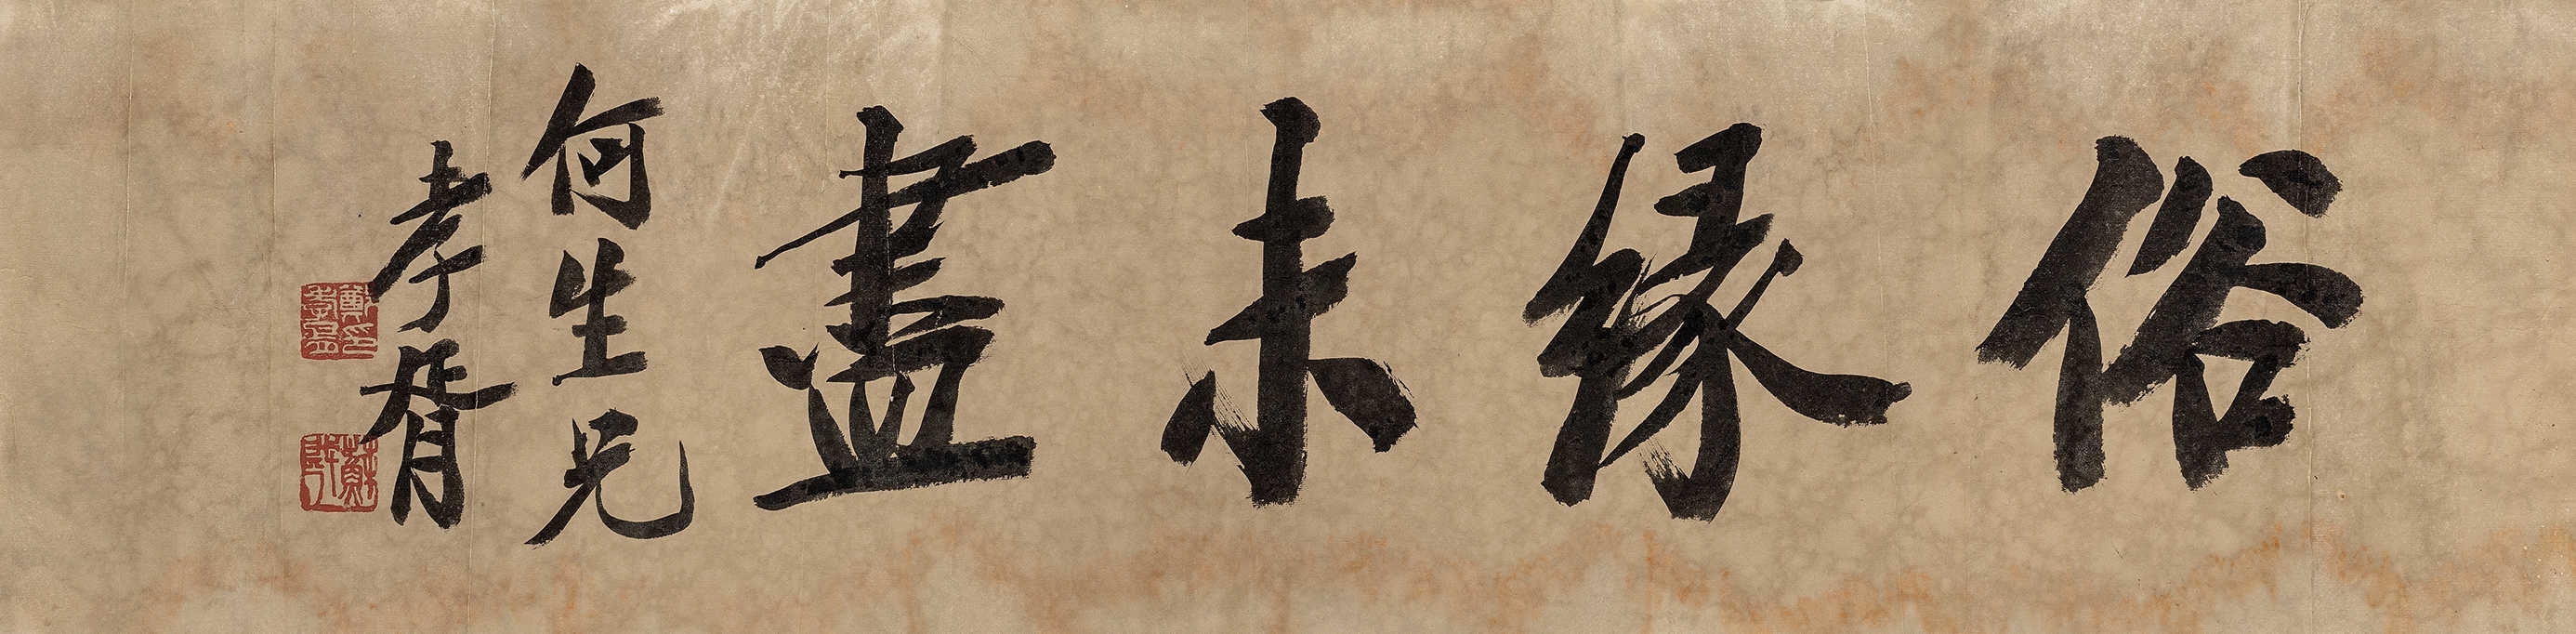 俗緣未盡
何生兄
孝胥
鄭印孝胥
蘇戡